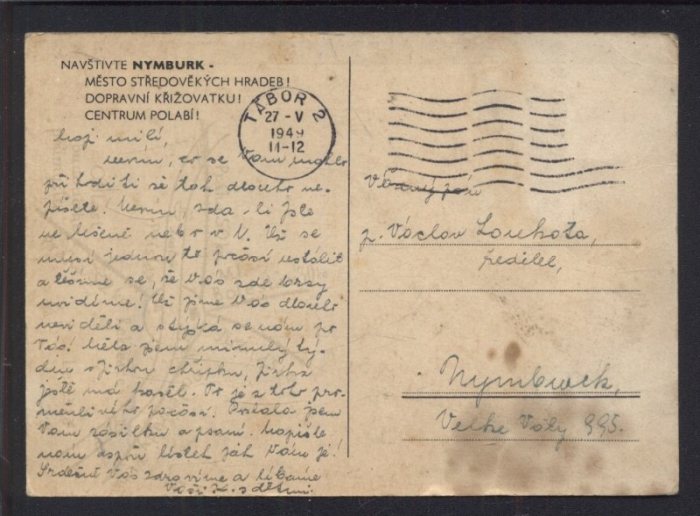 NAVŠTIVTE NYMBURK -
MĚSTO STŘEDOVĚKÝCH HRADEB!
DOPRAVNÍ KŘIŽOVATKU!
CENTRUM POLABÍ!
TÁBOR 2
27 - V
1949
11-12
Moji milí,
nevím, co se Vám mohlo
přihoditi že tak dlouho ne-
píšete! Nevím, zda-li jste
v N. Už se
musí jednou to počasí ustálit
a těšíme se, že Vás zde brzy
uvidíme! Už jsme Vás dlouho
neviděli a stýská se nám po
Vás! Měla jsem minulý tý-
den s Jirkou chřipku, Jirka
ještě má kašel. To je z toho pro-
měnlivého počasí. Dostala jsem
Vaši zásilku a psaní. Napište
nám aspoň lístek jak Vám je!
Srdečně Vás zdravíme a líbáme
Vaši s dětmi.
Vážený pán
p. Václav Loukota,
ředitel,
Nymburk,
Velké Valy 995.